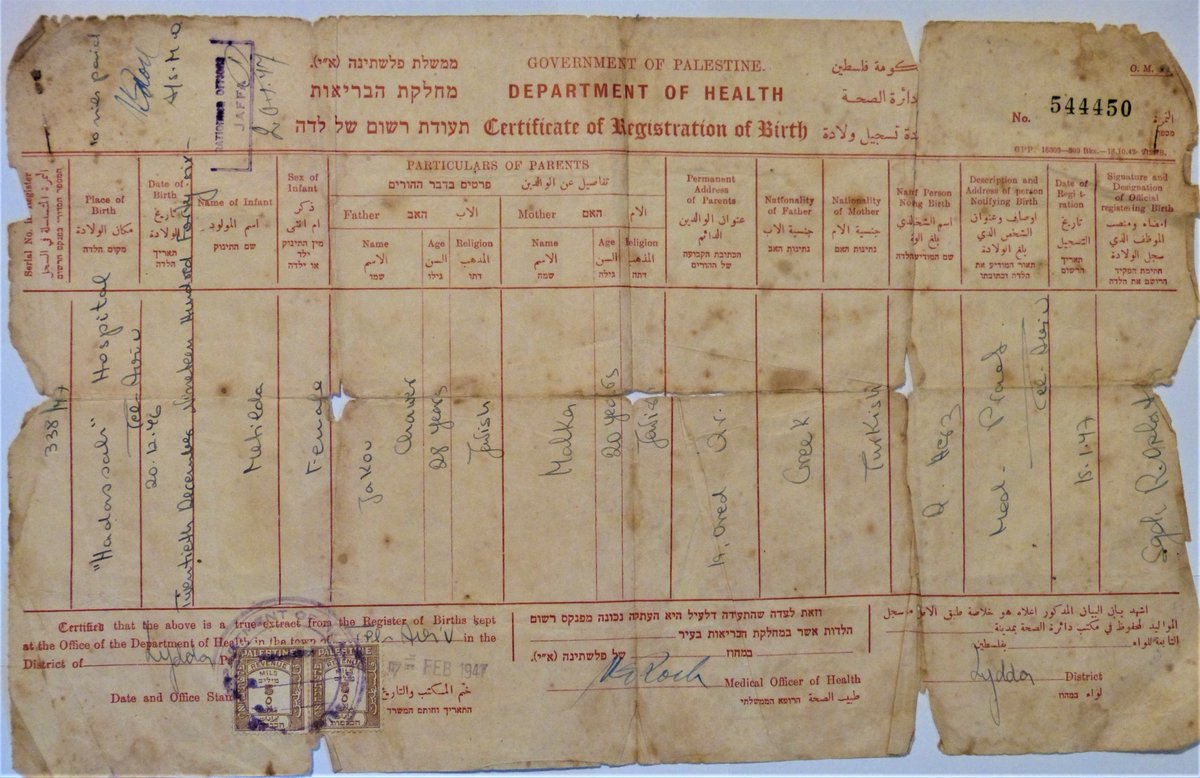 ממשלת פלשתינה (א״י).
GOVERNMENT OF PALESTINE.
كومة فلسطين
מחלקת הבריאות
DEPARTMENT OF HEALTH
دائرة الصحة
תעודת רשום של לדה
Certificate of Registration of Birth
دة تسجيل ولادة
No. 544450
النمرة
JAFFA
PARTICULARS OF PARENTS
פרטים בדבר ההורים
تفاصيل عن الوالدين
Serial No. in Register
Place of Birth
مكان الولادة
מקום הלדה
Date of Birth
تاريخ الولادة
תאריך הלדה
Name of Infant
اسم المولود
שם התינוק
Sex of Infant
ذكر ام انثى
מין התינוק ילד או ילדה
Father
האב
الاب
Name
الاسم
שמו
Age
السن
גילו
Religion
المذهب
דתו
Mother
האם
الام
Name
الاسم
שמה
Age
السن
גילה
Religion
المذهب
דתה
Permanent Address of Parents
عنوان الوالدين الدائم
הכתובת הקבועה של ההורים
Nationality of Father
جنسية الاب
נתינות האב
Nationality of Mother
جنسية الام
נתינות האם
Description and Address of person Notifying Birth
اوصاف وعنوان الشخص الذي بلغ الولادة
תאור המודיע על הלדה וכתובתו
Date of Regist-ration
تاريخ التسجيل
תאריך הרשום
Signature and Designation of Official registering Birth
امضاء ومنصب الموظف الذي سجل الولادة
חתימת הפקיד הרושם את הלדה
338/47
"Hadassah" Hospital
Tel-Aviv
20.12.46
Twentieth December Nineteen Hundred Forty six
Matilda
Female
Jakov
28 years
Jewish
Malka
20 years
Jewish
Greek
Turkish
Tel-Aviv
15.1.47
Certified that the above is a true extract from the Register of Births kept
at the Office of the Department of Health in the town of Tel-Aviv in the
District of Lydda
Date and Office Stam
PALESTINE
REVENUE
MILS
5
PALESTINE
REVENUE
MILS
5
FEB 1947
ختم المكتب والتاريخ
התאריך וחותם המשרד
וזאת לעדה שהתעודה דלעיל היא העתקה נכונה מפנקס רשום
הלדות אשר במחלקת הבריאות בעיר
במחוז
של פלשתינה (א״י).
Medical Officer of Health
طبيب الصحة
הרופא הממשלתי
اشهد بان البيان المذكور اعلاه هو خلاصة طبق الاصل من سجل
المواليد المحفوظ في مكتب دائرة الصحة بمدينة
التابعة للواء
بفلسطين
Lydda District
لواء
במחוז